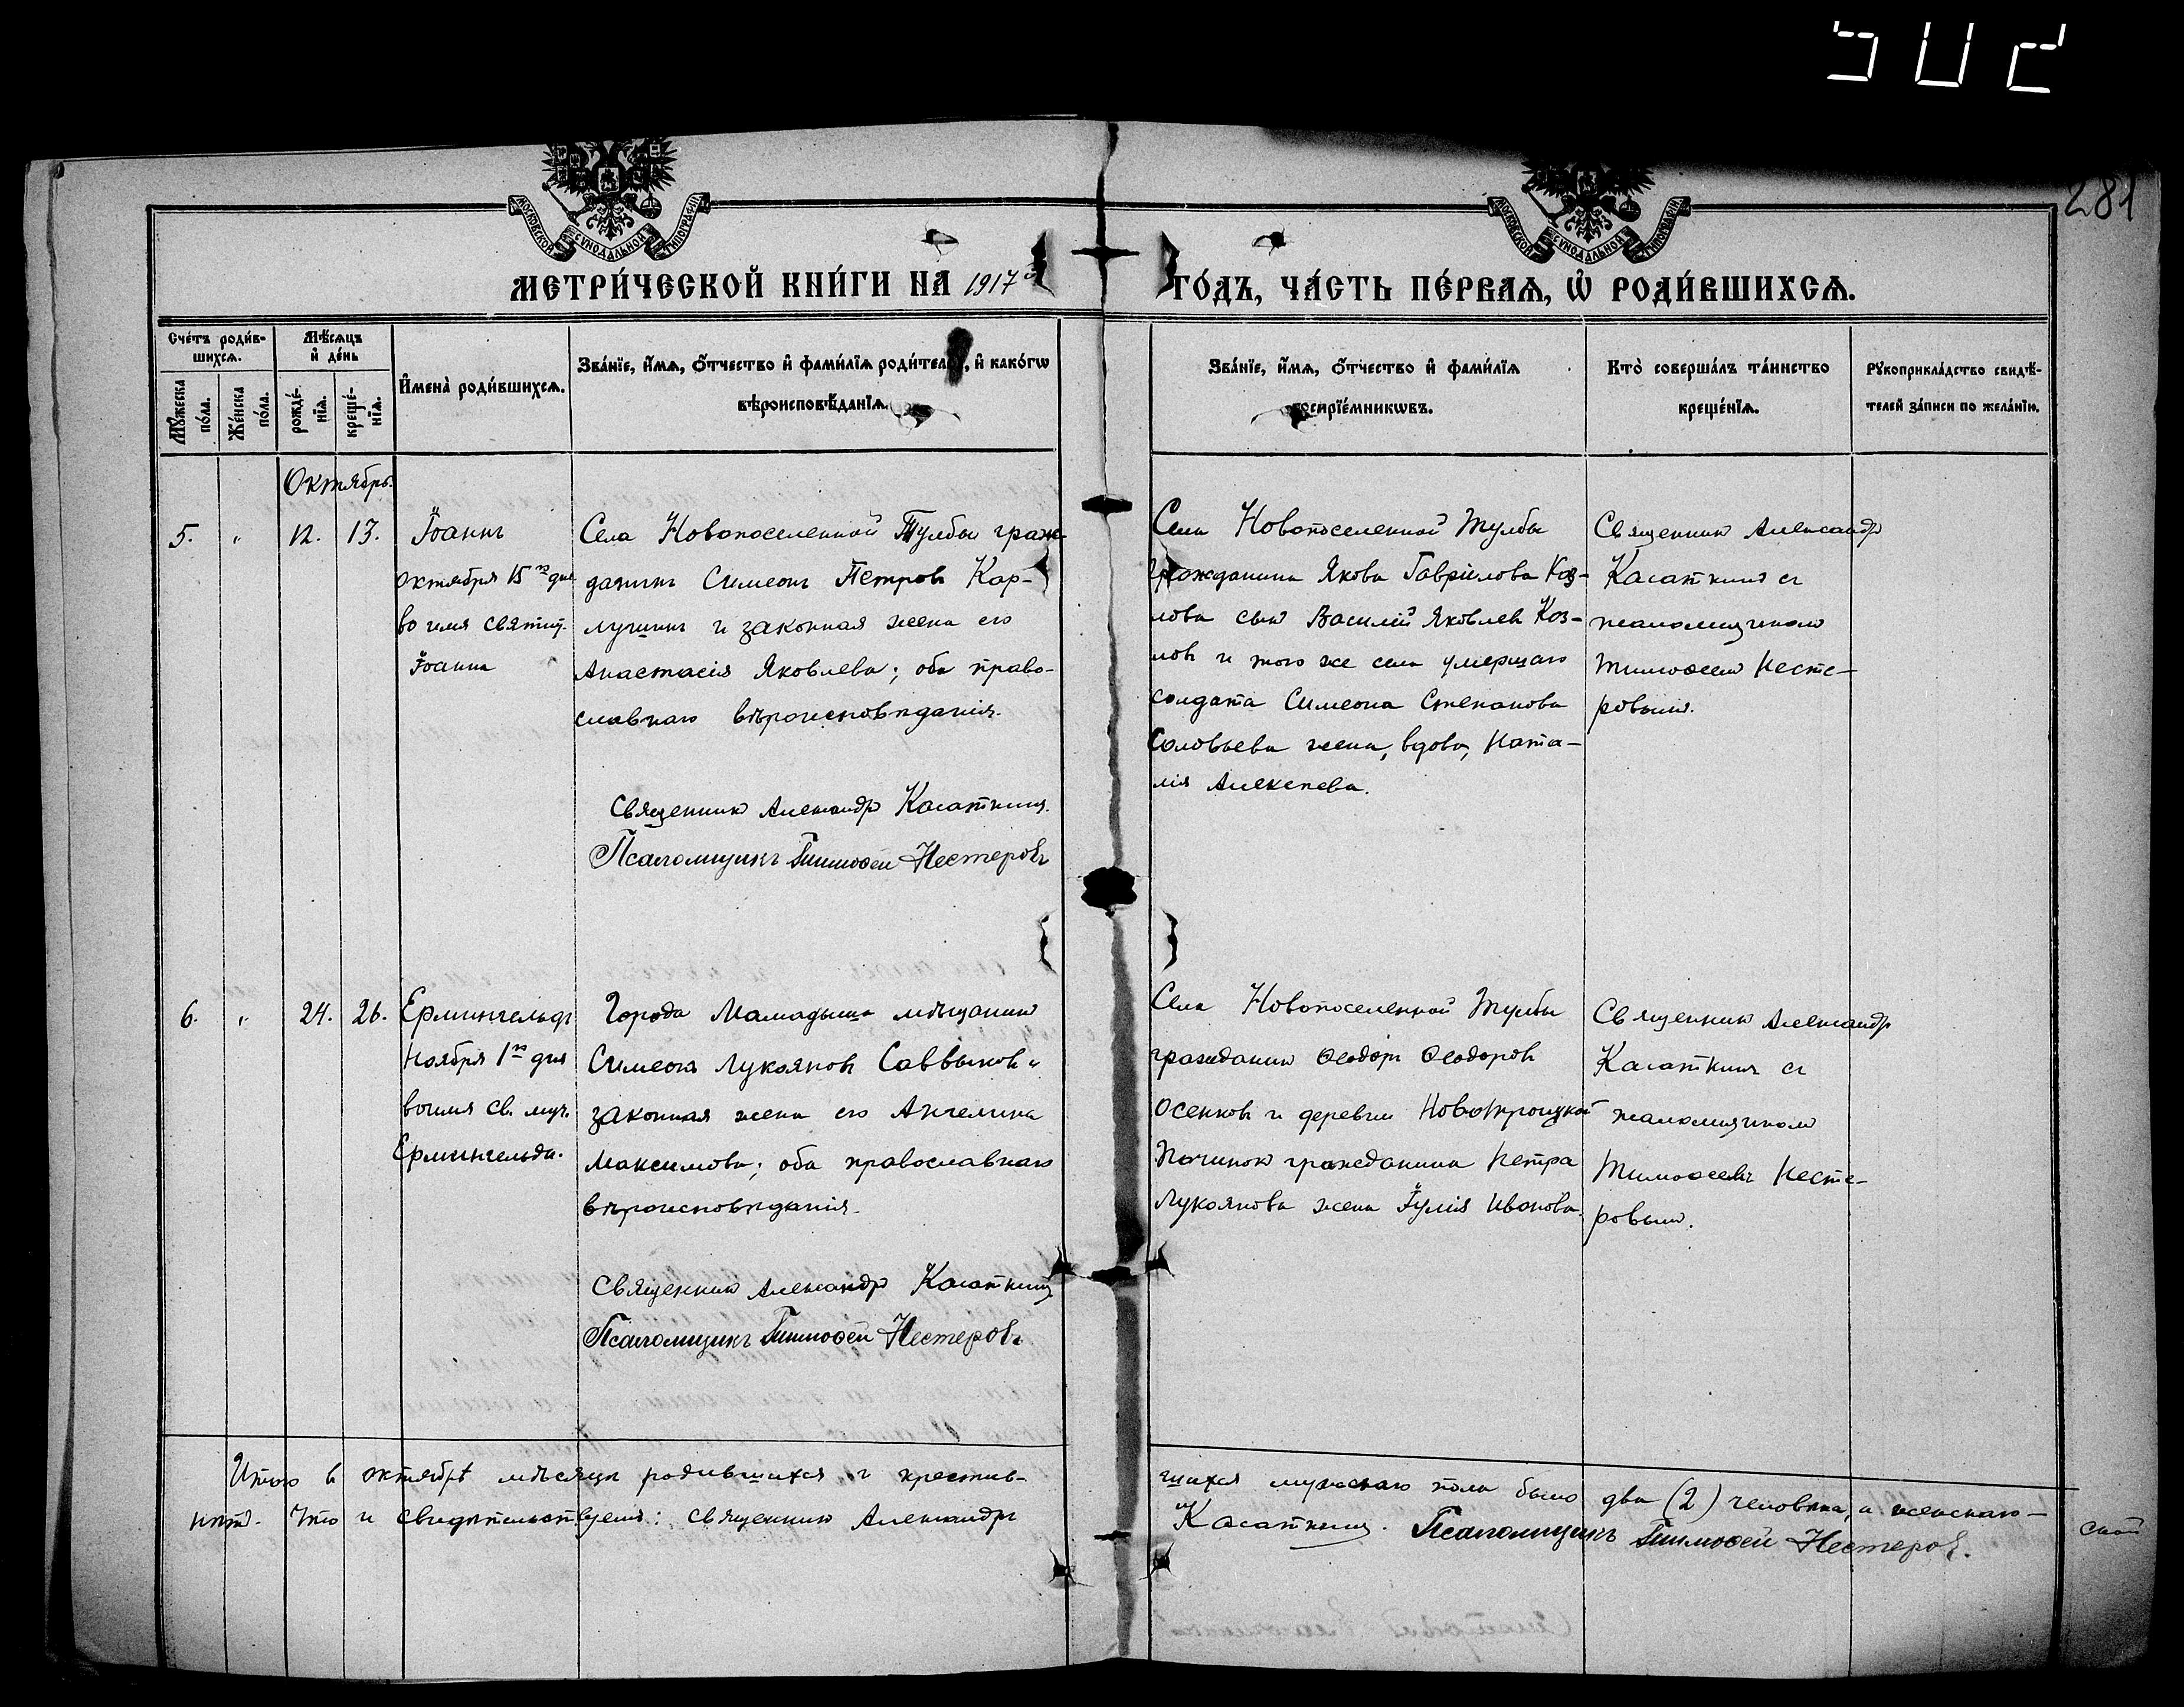 281
МОСКОВСКОЙ СѴНОДАЛЬНОЙ ТИПОГРАФІИ
МОСКОВСКОЙ СѴНОДАЛЬНОЙ ТИПОГРАФІИ
МЕТРИ́ЧЕСКОЙ КНИ́ГИ НА 1917 й ГО́ДЪ, ЧА́СТЬ ПЕ́РВАѦ, Ѡ҆ РОДИ́ВШИХСѦ.
Сче́тъ роди́в-
шихсѧ.
Мꙋ́жеска по́ла.
Же́нска по́ла.
Мѣ́сѧцъ
и҆ де́нь
рожде́-
нїѧ.
креще́-
нїѧ.
И҆мена̀ роди́вшихсѧ.
Зва́нїе, и҆́мѧ, ѻ҆́тчество и҆ фами́лїѧ роди́телей, и҆ како́гѡ
вѣроисповѣ́данїѧ.
Зва́нїе, и҆́мѧ, ѻ҆́тчество и҆ фами́лїѧ
воспрїе́мникѡвъ.
Кто̀ соверша́лъ та́инство
креще́нїѧ.
Рꙋкоприкла́дство свидѣ́-
телей за́писи по жела́нїю.
Октябрь.
5. „ 12. 13.
Іоаннъ
октября 15го дня
во имя святит.
Іоанна
Села Новопоселенной Тулбы граж-
данинъ Симеонъ Петровъ Кар-
лушинъ и законная жена его
Анастасія Яковлева; оба право-
славнаго вѣроисповѣданія.
Священникъ Александръ Касаткинъ.
Псаломщикъ Тимоѳей Нестеровъ
Села Новопоселенной Тулбы
гражданина Якова Гавріилова Коз-
лова сынъ Василій Яковлев Коз-
ловъ и того же села умершаго
солдата Симеона Степанова
Соловьева жена, вдова, Ната-
лія Алексѣева.
Священникъ Александръ
Касаткинъ съ
псаломщикомъ
Тимоѳеемъ Несте-
ровымъ.
6. „ 24. 26.
Ермингельдъ
Ноября 1го дня
во имя св. муч.
Ермингельда.
Города Мамадыша мѣщанинъ
Симеонъ Лукояновъ Саввинов и
законная жена его Ангелина
Максимова; оба православнаго
вѣроисповѣданія.
Священникъ Александръ Касаткинъ
Псаломщикъ Тимоѳей Нестеровъ
Села Новопоселенной Тулбы
гражданинъ Ѳеодоръ Ѳеодоровъ
Осенковъ и деревни Новотроицкой
Починокъ гражданина Петра
Лукоянова жена Іулія Иванова.
Священникъ Александръ
Касаткинъ съ
псаломщикомъ
Тимоѳеемъ Несте-
ровымъ.
Итого въ октябрѣ мѣсяцѣ родившихся и крестив-
шихся мужскаго пола было два (2) человѣка, а женскаго —
нѣтъ. Что и свидѣтельствуемъ: священникъ Александръ
Касаткинъ. Псаломщикъ Тимоѳей Нестеровъ.